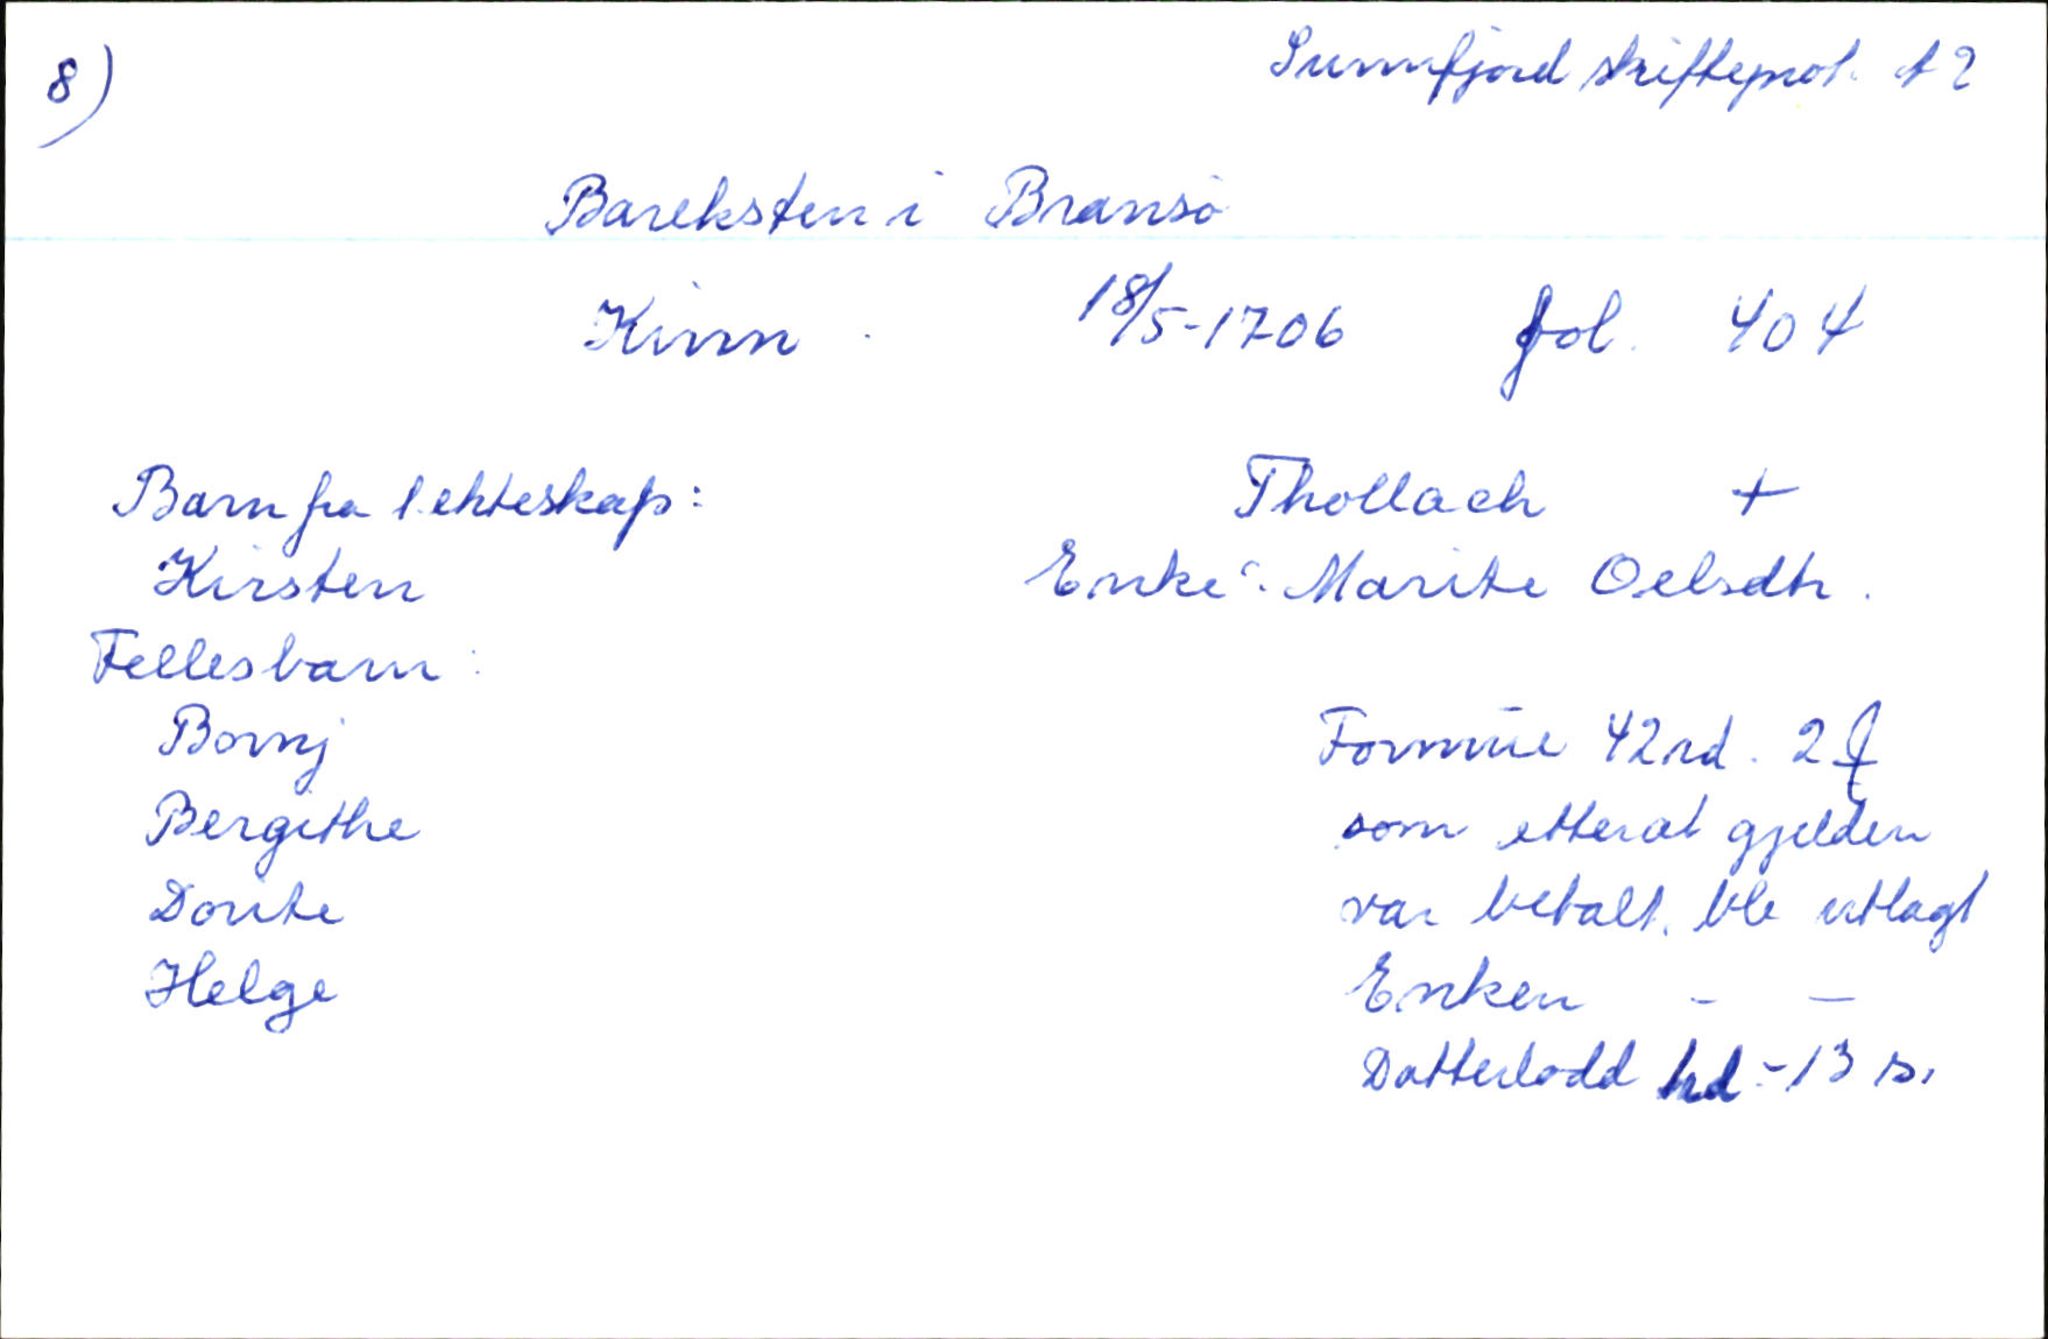 8)
Sunnfjord skifteprot. A 2
Bareksten i Bransö
Kinn. 18/5-1706 fol. 404
Barn fra 1. ekteskap: Thollach +
Kirsten Enke: Marite Oelsdtr.
Fellesbarn:
Bornj Formue 42 rd. 2
Bergithe som etterat gjelden
Dorite var betalt, ble utlagt
Helge Enken - -
Datterlodd - 13 s.